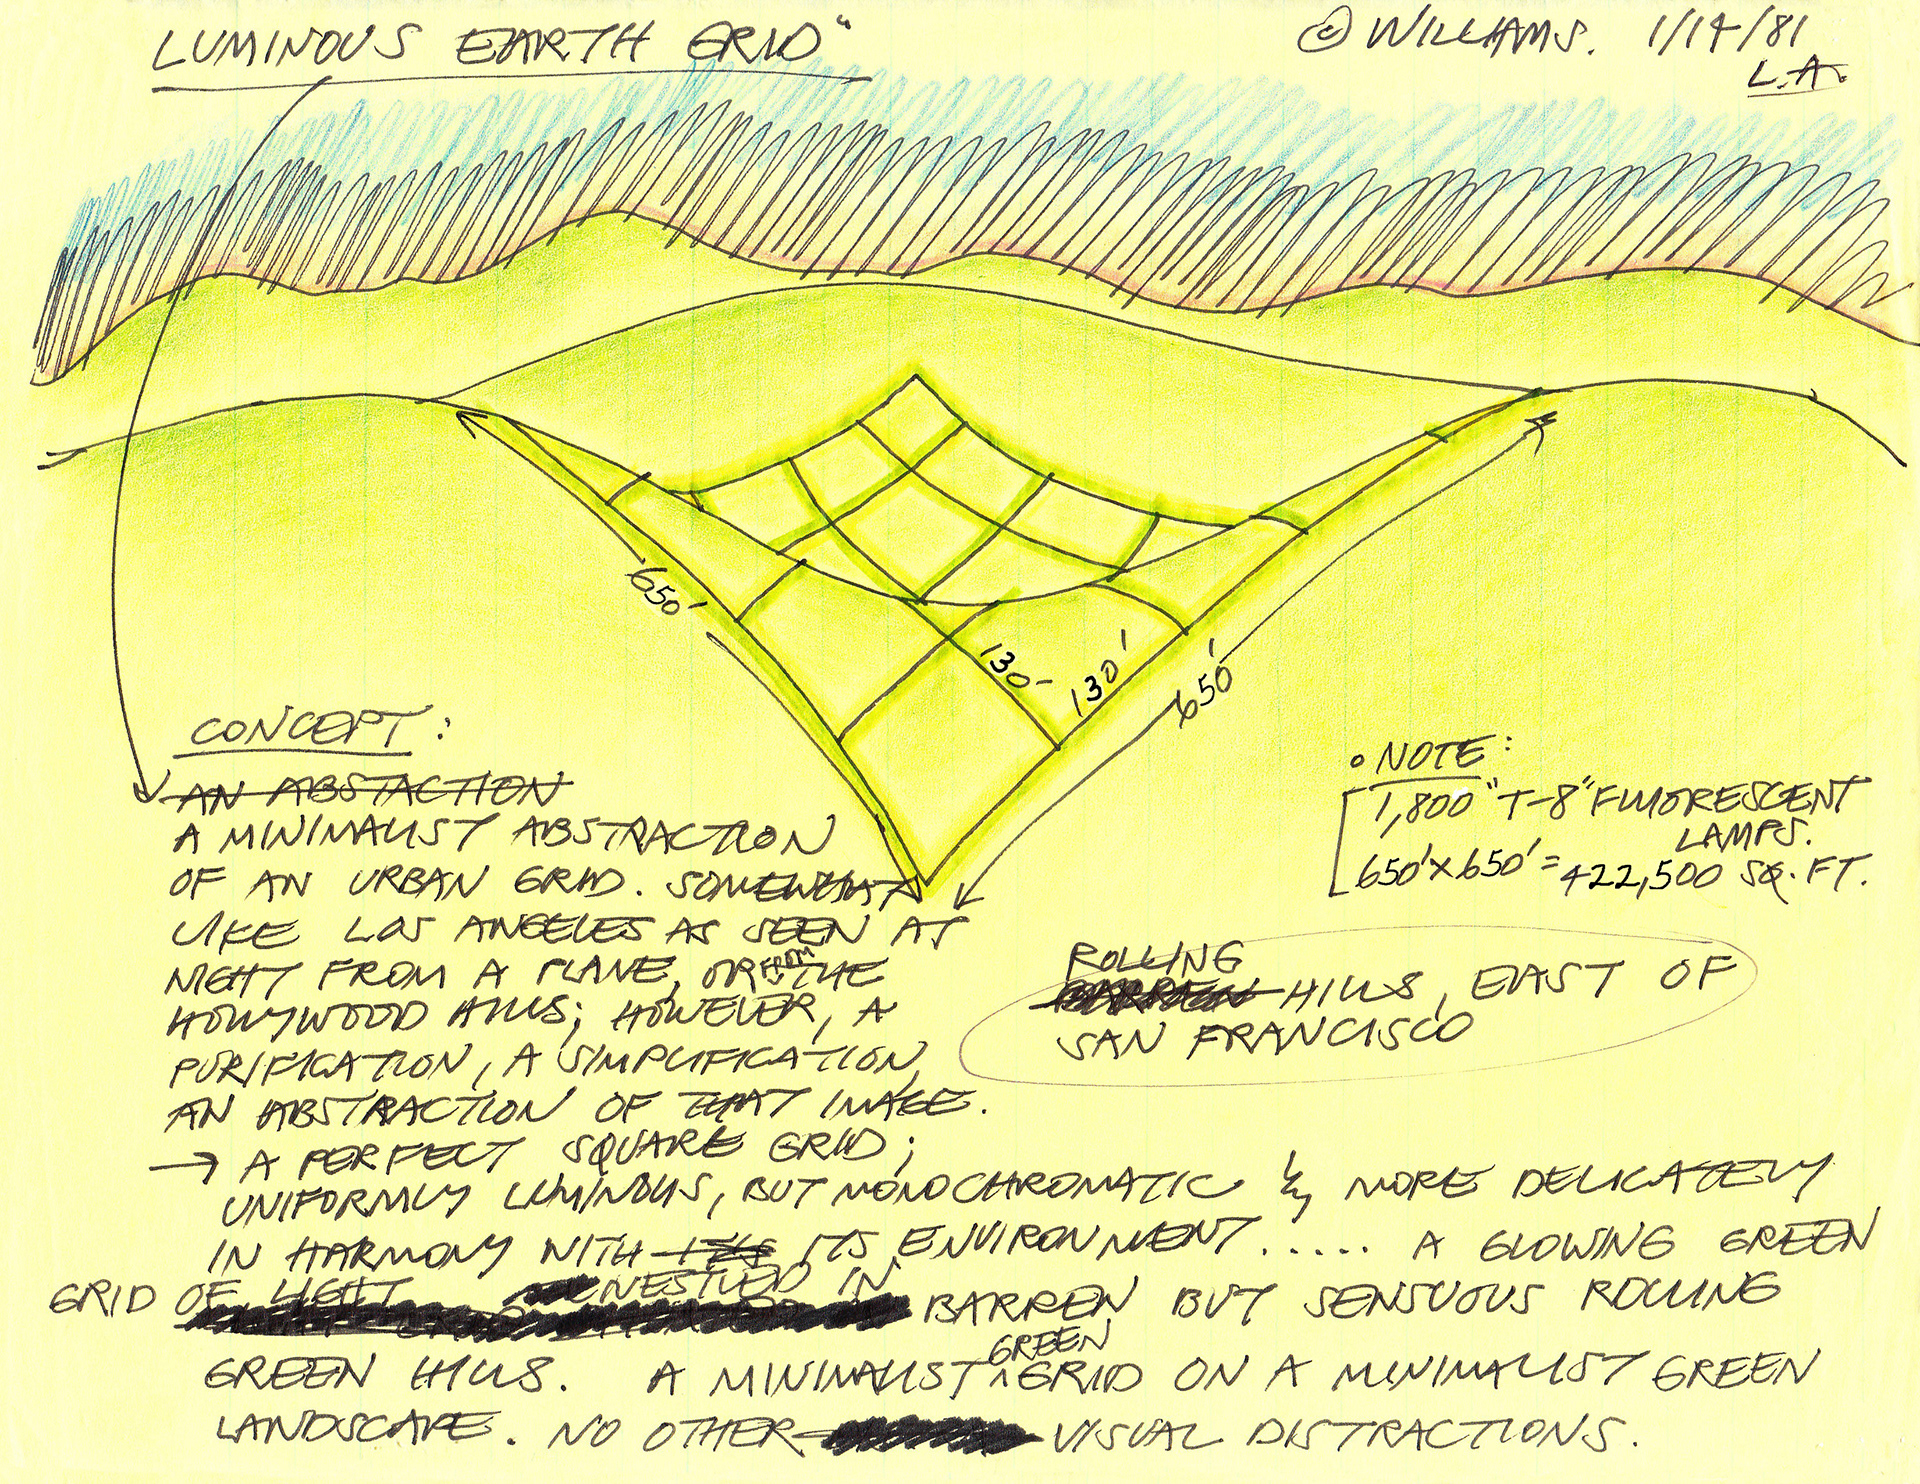 LUMINOUS EARTH GRID"
© WILLIAMS. 1/14/81
L.A.
650'
130'
130'
650'
CONCEPT:
AN ABSTACTION
A MINIMALIST ABSTRACTION
OF AN URBAN GRID. SOMEWHAT
LIKE LOS ANGELES AS SEEN AT
NIGHT FROM A PLANE, OR FROM THE
HOLLYWOOD HILLS; HOWEVER, A
PURIFICATION, A SIMPLIFICATION,
AN ABSTRACTION OF THAT IMAGE.
→ A PERFECT SQUARE GRID;
UNIFORMLY LUMINOUS, BUT MONOCHROMATIC & MORE DELICATELY
IN HARMONY WITH ITS ENVIRONMENT..... A GLOWING GREEN
GRID OF LIGHT NESTLED IN BARREN BUT SENSUOUS ROLLING
GREEN HILLS. A MINIMALIST GREEN GRID ON A MINIMALIST GREEN
LANDSCAPE. NO OTHER VISUAL DISTRACTIONS.
• NOTE:
1,800 "T-8" FLUORESCENT
LAMPS.
650'x650' = 422,500 SQ. FT.
ROLLING
BARREN HILLS, EAST OF
SAN FRANCISCO